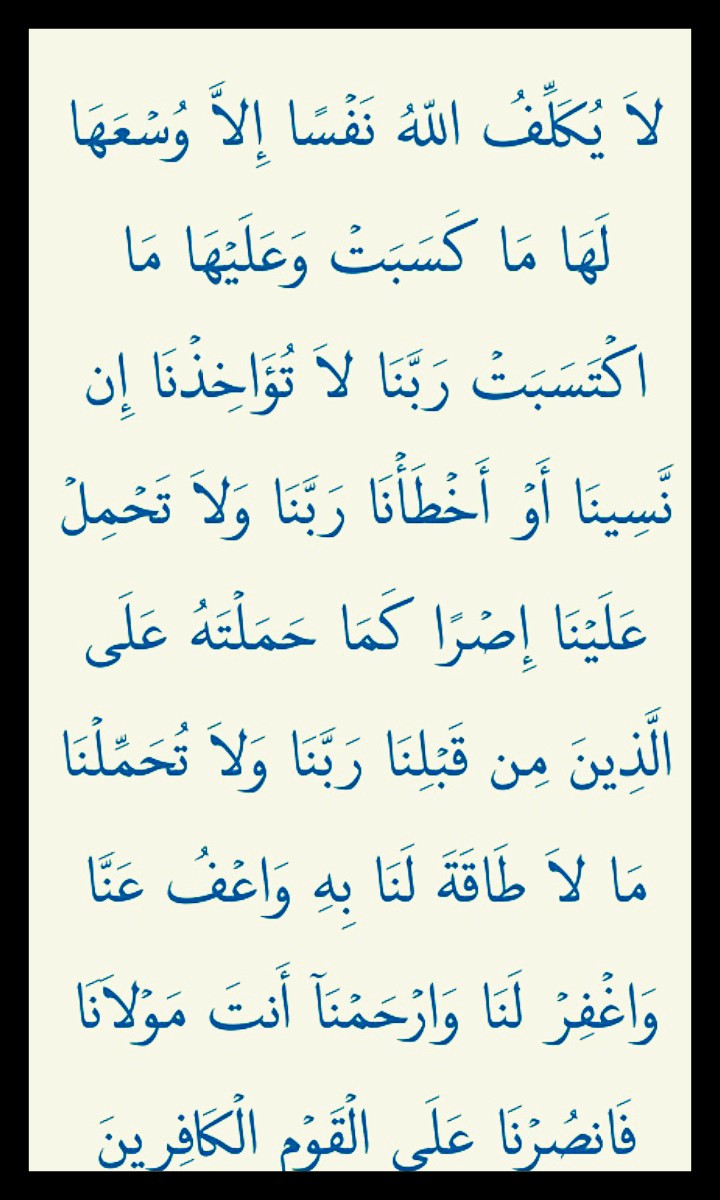 لاَ يُكَلِّفُ اللّهُ نَفْسًا إِلاَّ وُسْعَهَا
لَهَا مَا كَسَبَتْ وَعَلَيْهَا مَا
اكْتَسَبَتْ رَبَّنَا لاَ تُؤَاخِذْنَا إِن
نَّسِينَا أَوْ أَخْطَأْنَا رَبَّنَا وَلاَ تَحْمِلْ
عَلَيْنَا إِصْرًا كَمَا حَمَلْتَهُ عَلَى
الَّذِينَ مِن قَبْلِنَا رَبَّنَا وَلاَ تُحَمِّلْنَا
مَا لاَ طَاقَةَ لَنَا بِهِ وَاعْفُ عَنَّا
وَاغْفِرْ لَنَا وَارْحَمْنَآ أَنتَ مَوْلاَنَا
فَانصُرْنَا عَلَى الْقَوْمِ الْكَافِرِينَ